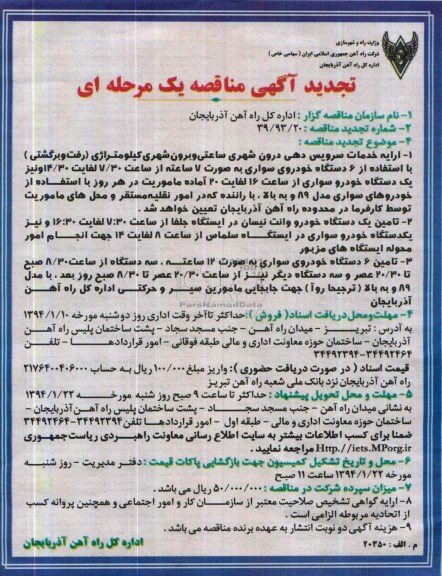 وزارت راه و شهرسازی
شرکت راه آهن جمهوری اسلامی ایران ( سهامی خاص )
اداره کل راه آهن آذربایجان
تجدید آگهی مناقصه یک مرحله ای
۱- نام سازمان مناقصه گزار : اداره کل راه آهن آذربایجان
۲- شماره تجدید مناقصه : ۳۹/۹۳/۲۰
۴- موضوع تجدید مناقصه :
۱- ارایه خدمات سرویس دهی درون شهری ساعتی وبرون شهری کیلومتراژی (رفت وبرگشتی )
با استفاده از ۶ دستگاه خودروی سواری به صورت ۷ ساعته از ساعت ۷/۳۰ لغایت ۱۴/۳۰ونیز
یک دستگاه خودرو سواری از ساعت ۱۶ لغایت ۲۰ آماده ماموریت در هر روز با استفاده از
خودروهای سواری مدل ۸۹ و به بالا ، با راننده که در امور نقلیه مستقر و محل های ماموریت
توسط کارفرما در محدوده راه آهن آذربایجان تعیین خواهد شد .
۲- تامین یک دستگاه خودرو وانت نیسان در ایستگاه جلفا از ساعت ۷:۳۰ لغایت ۱۶:۳۰ و نیز
یکدستگاه خودرو سواری در ایستگاه سلماس از ساعت ۸ لغایت ۱۴ جهت انجام امور
محوله ایستگاه های مزبور
۳- تامین ۶ دستگاه خودروی سواری به صورت ۱۲ ساعته ، سه دستگاه از ساعت ۸/۳۰ صبح
تا ۲۰/۳۰ عصر و سه دستگاه دیگر نیز از ساعت ۲۰/۳۰ عصر تا ۸/۳۰ صبح روز بعد ، با مدل
۸۹ و به بالا ( ترجیحا روآ ) جهت جابجایی مامورین سیر و حرکتی اداره کل راه آهن
آذربایجان
ParsNamadData
۴- مهلت ومحل دریافت اسناد( فروش ) : حداکثر تاآخر وقت اداری روز دوشنبه مورخه ۱۳۹۴/۱/۱۰
به آدرس : تبریز - میدان راه آهن - جنب مسجد سجاد - پشت ساختمان پلیس راه آهن
آذربایجان - ساختمان حوزه معاونت اداری و مالی طبقه فوقانی - امور قراردادها - تلفن
۳۴۴۹۲۴۶۴-۳۴۴۹۲۳۹۴
قیمت اسناد ( در صورت دریافت حضوری ): واریز مبلغ ۱۰۰/۰۰۰ ریال به حساب ۲۱۷۶۴۰۰۴۰۶۰۰۰
راه آهن آذربایجان نزد بانک ملی شعبه راه آهن تبریز
۵- مهلت و محل تحویل پیشنهاد : حداکثر تا ساعت ۹ صبح روز شنبه مورخه ۱۳۹۴/۱/۲۲
به نشانی میدان راه آهن - جنب مسجد سجاد - پشت ساختمان پلیس راه آهن آذربایجان -
ساختمان حوزه معاونت اداری و مالی - طبقه اول - امور قراردادها تلفن ۳۴۴۹۲۳۹۴-۳۴۴۹۲۴۶۴
ضمنا برای کسب اطلاعات بیشتر به سایت اطلاع رسانی معاونت راهبردی ریاست جمهوری
Http.//iets.MPorg.ir مراجعه نمایید .
۶- محل و تاریخ تشکیل کمیسیون جهت بازگشایی پاکات قیمت : دفتر مدیریت - روز شنبه
مورخه ۱۳۹۴/۱/۲۲ ساعت ۱۱ صبح
۷- میزان سپرده شرکت در مناقصه : ۵۰/۰۰۰/۰۰۰ ریال می باشد .
۸- ارایه گواهی تشخیص صلاحیت معتبر از سازمان کار و امور اجتماعی و همچنین پروانه کسب
از اتحادیه مربوطه الزامی است .
۹- هزینه آگهی دو نوبت انتشار به عهده برنده مناقصه می باشد .
اداره کل راه آهن آذربایجان
م . الف : ۲۰۳۵۰